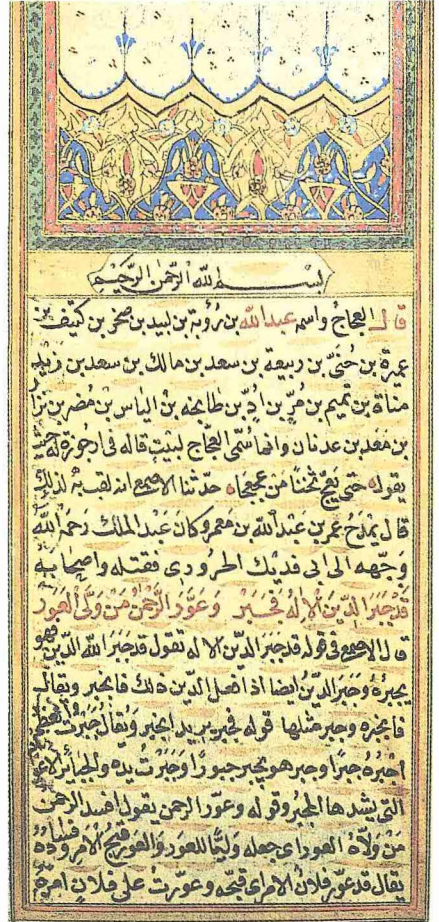 بسم الله الرحمن الرحيم
قال العجاج واسمه عبد الله بن رؤبة بن لبيد بن صخر بن كثيف بن
عميرة بن حنى بن ربيعة بن سعد بن مالك بن سعد بن زيد
مناة بن تميم بن مر بن اد بن طابخة بن الياس بن مضر بن نزار
بن معد بن عدنان وانما سمى العجاج لبيت قاله فى ارجوزة له حيث
يقوله حتى يعج ثخنا من عجعجا حدثنا الاصمعى انه لقب به لذلك
قال يمدح عمر بن عبد الله بن معمر وكان عبد الملك رحمه الله
وجهه الى ابى فديك الحرورى فقتله واصحابه
قَدْ جَبَرَ الدِّينَ الْإِلٰهُ فَجَبَرْ وَعَوَّرَ الرَّحْمٰنُ مَنْ وَلَّى الْعَوَرْ
قال الاصمعى فى قوله قد جبر الدين الاله تقول قد جبر الله الدين فهو
يجبره وجبر الدين ايضا اذا فعل الدين ذلك فانجبر ويقال
فانجبره وجبر مثلها قوله فجبر يريد انجبر ويقال جبرت العظم
اجبره جبرا وجبر هو يجبر جبورا وجبرت يده والجبائر
التى يشدها المجبر وقوله وعور الرحمن يقول افسد الرحمن
من ولاه العور اى جعله وليا للعور والعور قبح الامر وفساده
يقال قد عور فلان الامر اى قبحه وعورت على فلان امره